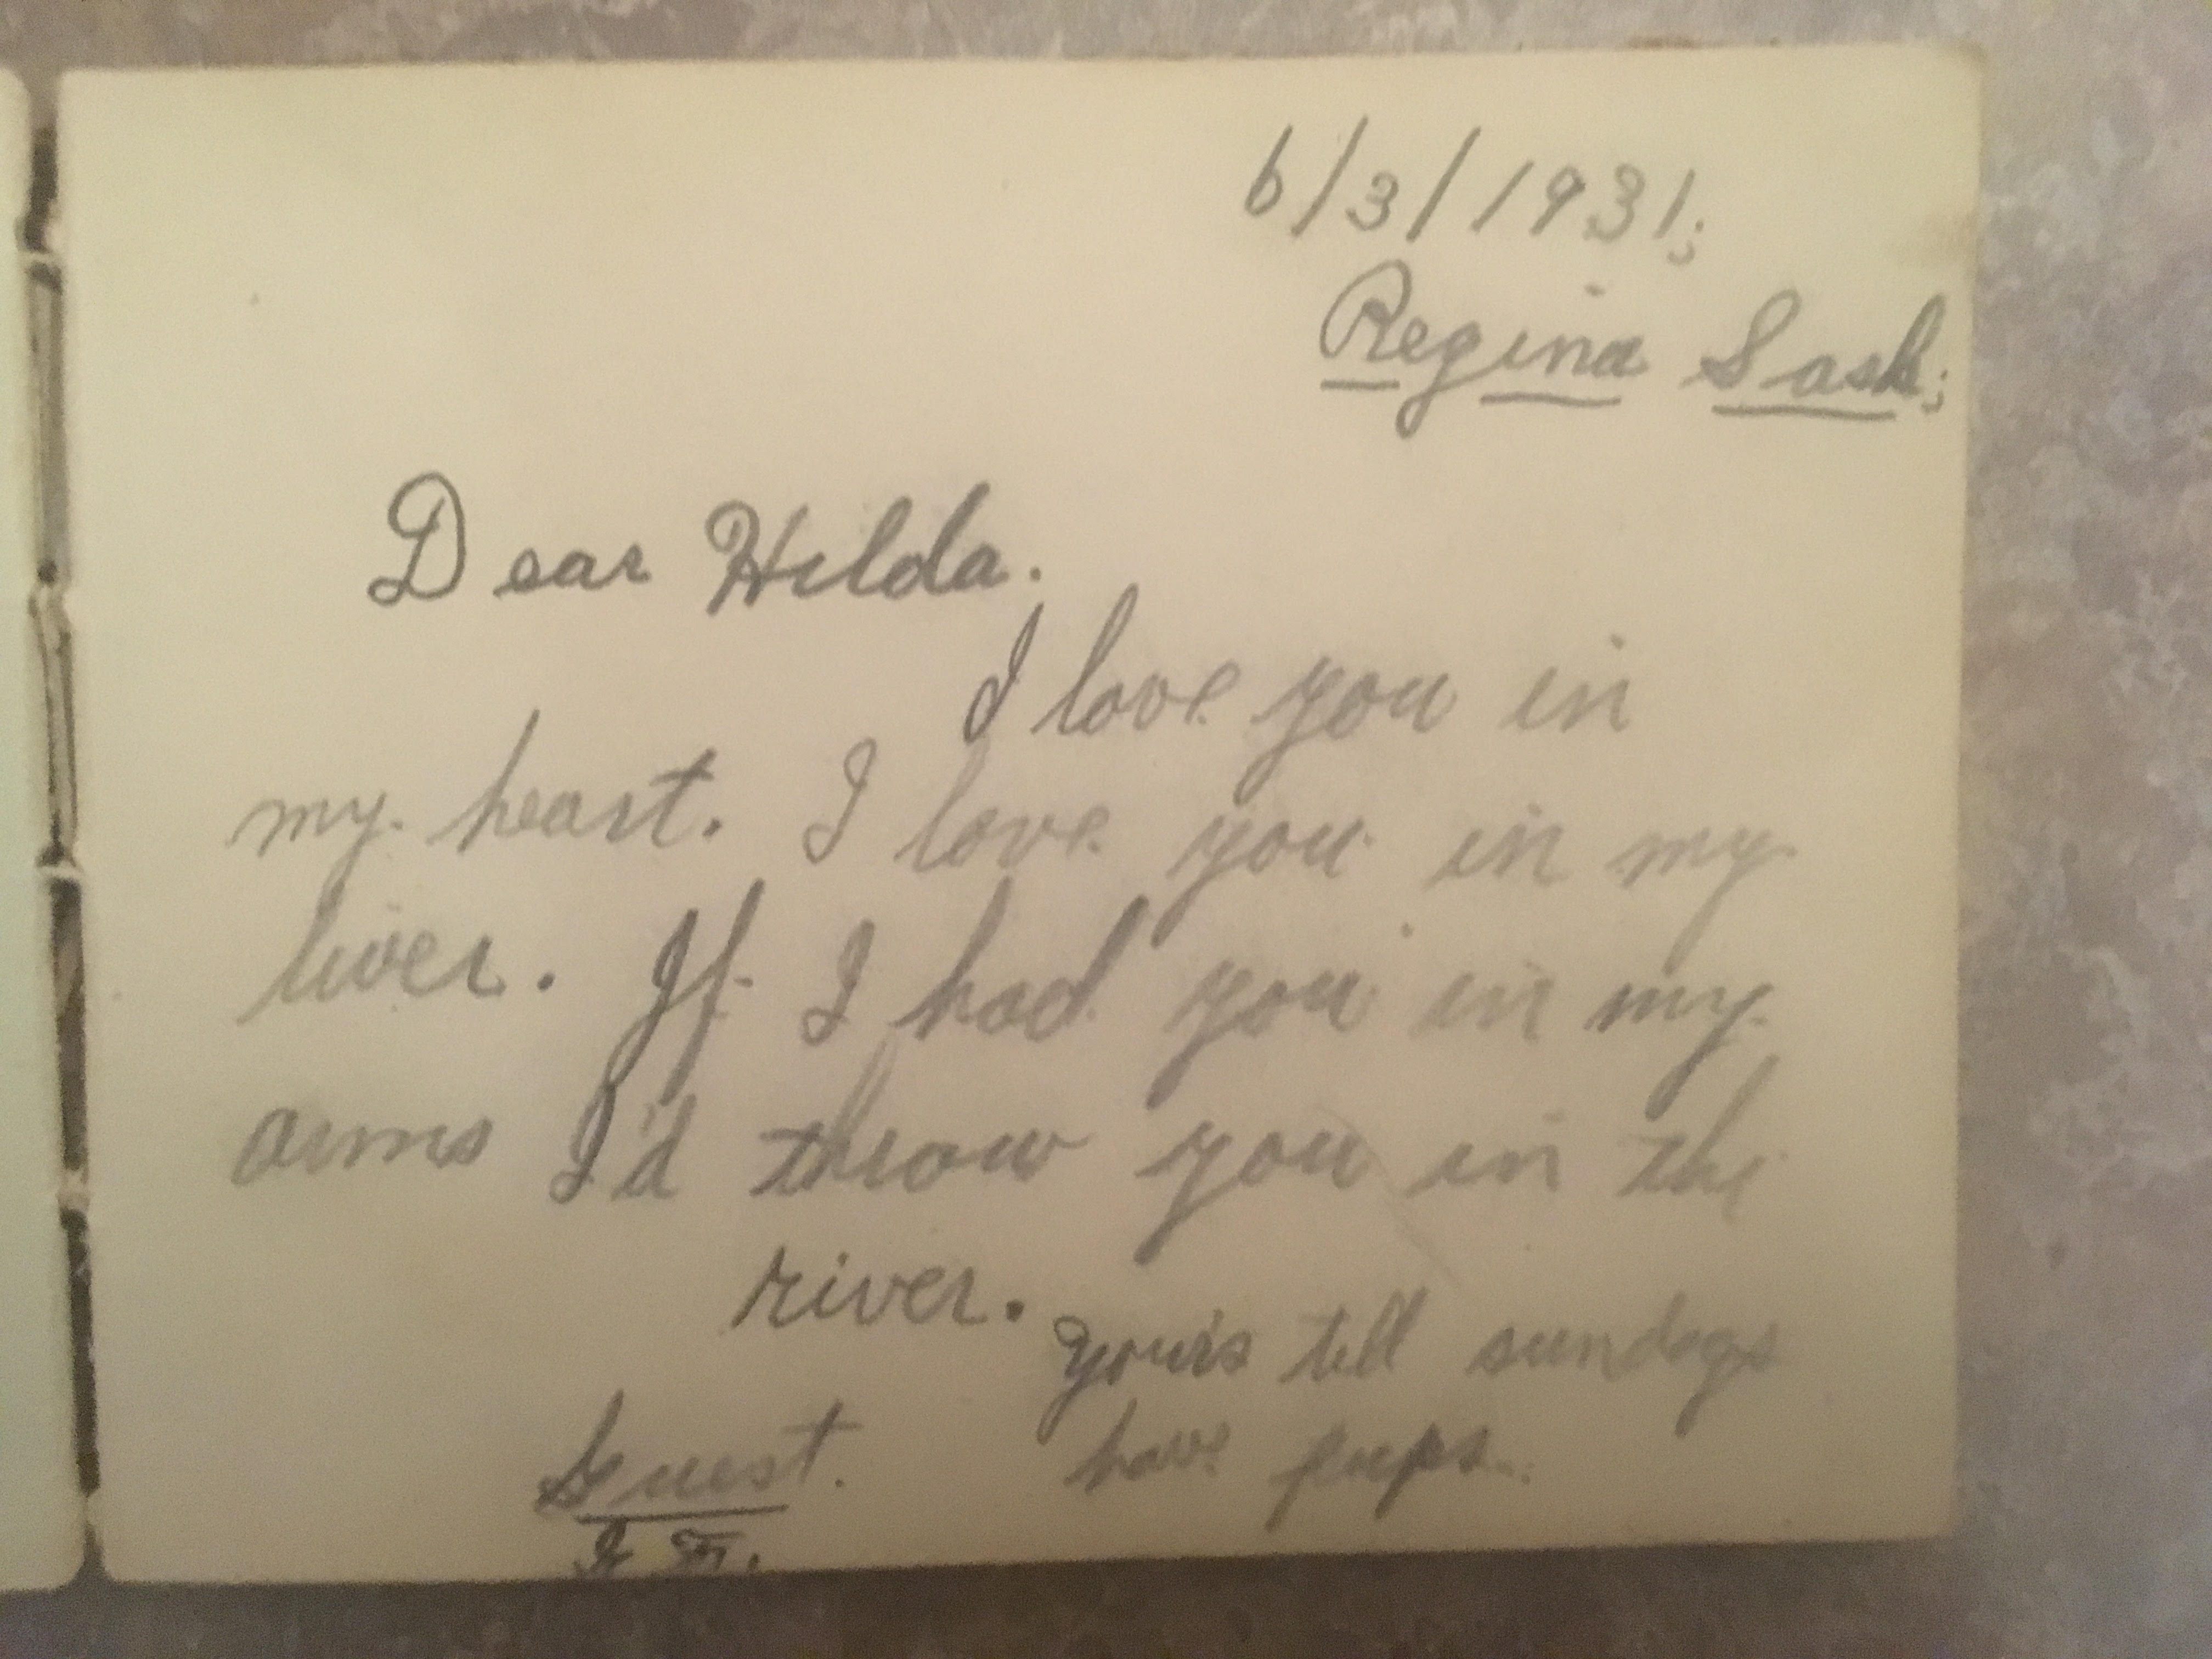 6/3/1931;
Regina Sask;
Dear Hilda.
I love you in
my heart. I love you in my
liver. If I had you in my
arms I'd throw you in the
river.
Your's till sundogs
have pups.
Guest.